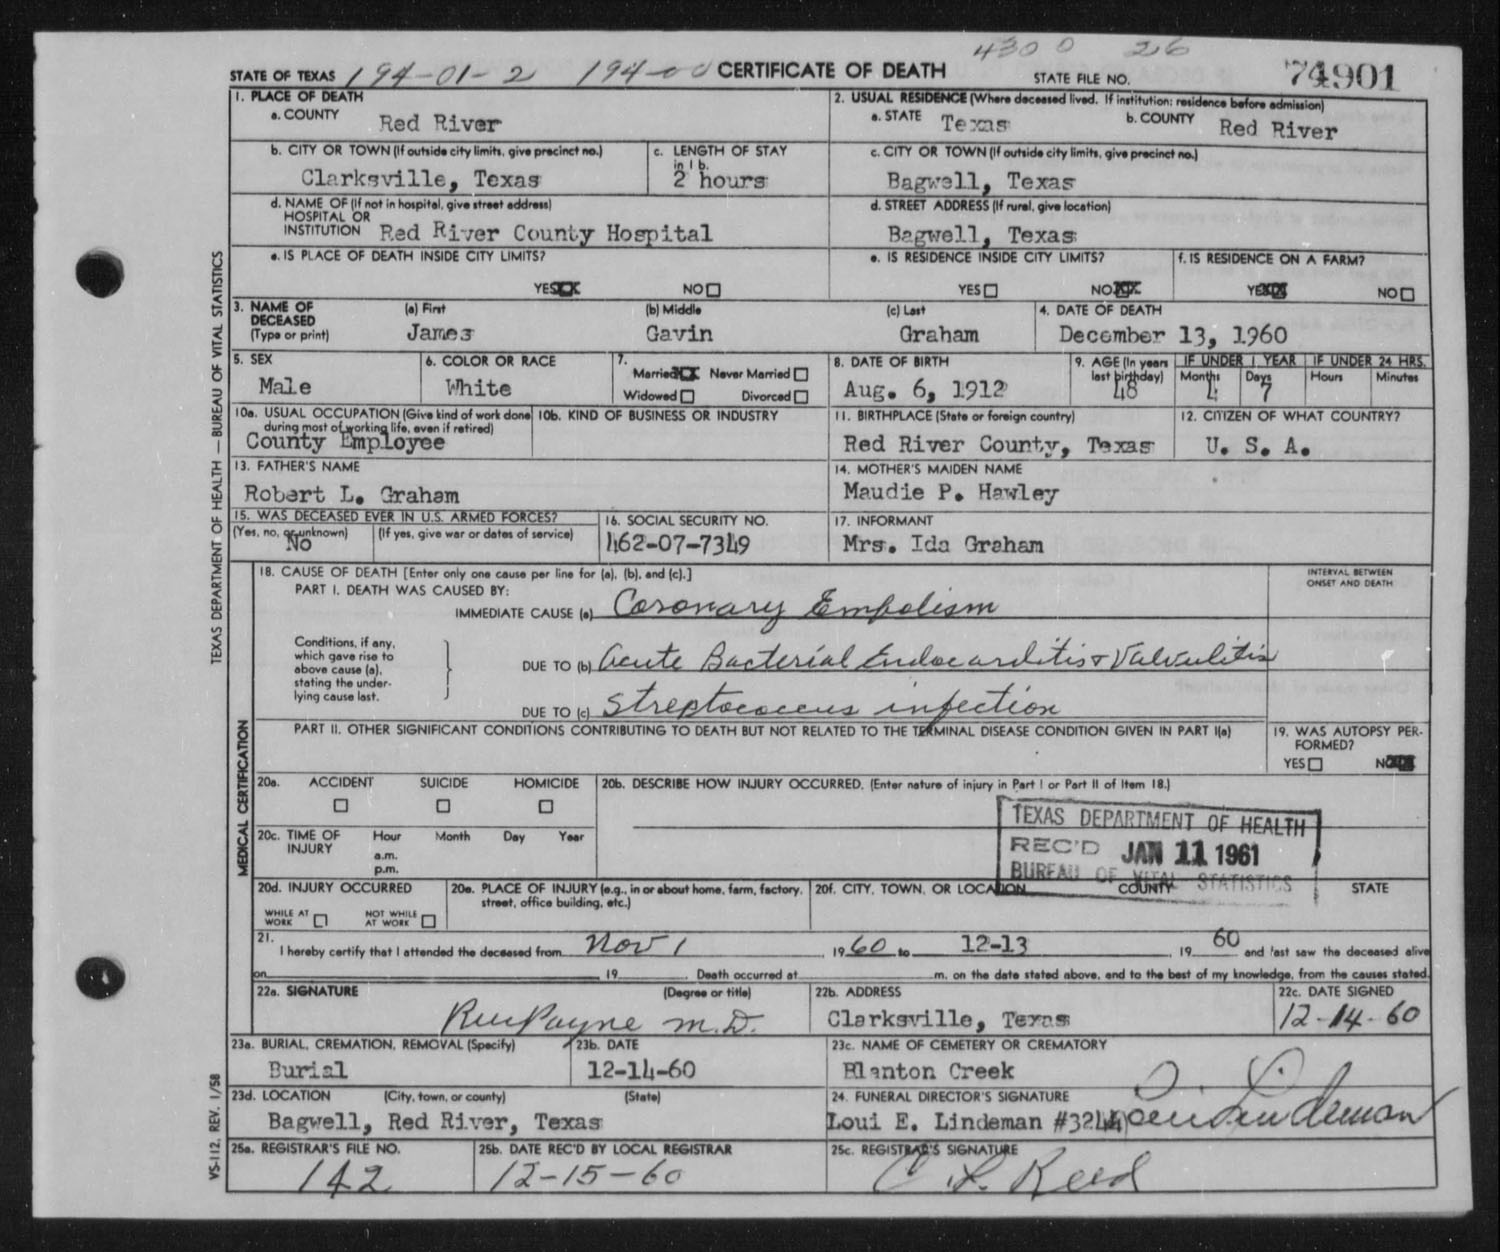 4300 26
STATE OF TEXAS 194-01-2 194-00 CERTIFICATE OF DEATH STATE FILE NO. 74901
1. PLACE OF DEATH
a. COUNTY Red River
2. USUAL RESIDENCE (Where deceased lived. If institution: residence before admission)
a. STATE Texas b. COUNTY Red River
b. CITY OR TOWN (If outside city limits, give precinct no.)
Clarksville, Texas
c. LENGTH OF STAY
in 1 b.
2 hours
c. CITY OR TOWN (If outside city limits, give precinct no.)
Bagwell, Texas
d. NAME OF (If not in hospital, give street address)
HOSPITAL OR
INSTITUTION Red River County Hospital
d. STREET ADDRESS (If rural, give location)
Bagwell, Texas
e. IS PLACE OF DEATH INSIDE CITY LIMITS?
YES XX NO
e. IS RESIDENCE INSIDE CITY LIMITS?
YES NO XX
f. IS RESIDENCE ON A FARM?
YES XX NO
3. NAME OF
DECEASED
(Type or print)
(a) First
James
(b) Middle
Gavin
(c) Last
Graham
4. DATE OF DEATH
December 13, 1960
5. SEX
Male
6. COLOR OR RACE
White
7.
Married XX Never Married
Widowed Divorced
8. DATE OF BIRTH
Aug. 6, 1912
9. AGE (In years
last birthday)
48
IF UNDER 1 YEAR IF UNDER 24 HRS.
Months Days Hours Minutes
4 7
10a. USUAL OCCUPATION (Give kind of work done
during most of working life, even if retired)
County Employee
10b. KIND OF BUSINESS OR INDUSTRY
11. BIRTHPLACE (State or foreign country)
Red River County, Texas
12. CITIZEN OF WHAT COUNTRY?
U. S. A.
13. FATHER'S NAME
Robert L. Graham
14. MOTHER'S MAIDEN NAME
Maudie P. Hawley
15. WAS DECEASED EVER IN U.S. ARMED FORCES?
(Yes, no, or unknown) (If yes, give war or dates of service)
No
16. SOCIAL SECURITY NO.
462-07-7349
17. INFORMANT
Mrs. Ida Graham
18. CAUSE OF DEATH [Enter only one cause per line for (a), (b), and (c).]
PART I. DEATH WAS CAUSED BY:
IMMEDIATE CAUSE (a) Coronary Embolism
INTERVAL BETWEEN
ONSET AND DEATH
Conditions, if any,
which gave rise to
above cause (a),
stating the under-
lying cause last.
DUE TO (b) Acute Bacterial Endocarditis & Valvulitis
DUE TO (c) Streptococcus infection
PART II. OTHER SIGNIFICANT CONDITIONS CONTRIBUTING TO DEATH BUT NOT RELATED TO THE TERMINAL DISEASE CONDITION GIVEN IN PART I(a)
19. WAS AUTOPSY PER-
FORMED?
YES NO XX
20a. ACCIDENT SUICIDE HOMICIDE
20b. DESCRIBE HOW INJURY OCCURRED. (Enter nature of injury in Part I or Part II of Item 18.)
20c. TIME OF
INJURY
Hour Month Day Year
a.m.
p.m.
TEXAS DEPARTMENT OF HEALTH
REC'D JAN 11 1961
BUREAU OF VITAL STATISTICS
20d. INJURY OCCURRED
WHILE AT
WORK
NOT WHILE
AT WORK
20e. PLACE OF INJURY (e.g., in or about home, farm, factory,
street, office building, etc.)
20f. CITY, TOWN, OR LOCATION COUNTY STATE
21.
I hereby certify that I attended the deceased from Nov 1 19 60 to 12-13, 19 60 and last saw the deceased alive
on 19 Death occurred at m. on the date stated above, and to the best of my knowledge, from the causes stated.
22a. SIGNATURE (Degree or title)
Payne M.D.
22b. ADDRESS
Clarksville, Texas
22c. DATE SIGNED
12-14-60
23a. BURIAL, CREMATION, REMOVAL (Specify)
Burial
23b. DATE
12-14-60
23c. NAME OF CEMETERY OR CREMATORY
Blanton Creek
23d. LOCATION (City, town, or county) (State)
Bagwell, Red River, Texas
24. FUNERAL DIRECTOR'S SIGNATURE
Loui E. Lindeman #3244 Lindeman
25a. REGISTRAR'S FILE NO.
142
25b. DATE REC'D BY LOCAL REGISTRAR
12-15-60
25c. REGISTRAR'S SIGNATURE
C. L. Reed
TEXAS DEPARTMENT OF HEALTH — BUREAU OF VITAL STATISTICS
MEDICAL CERTIFICATION
VS-112, REV. 1/58